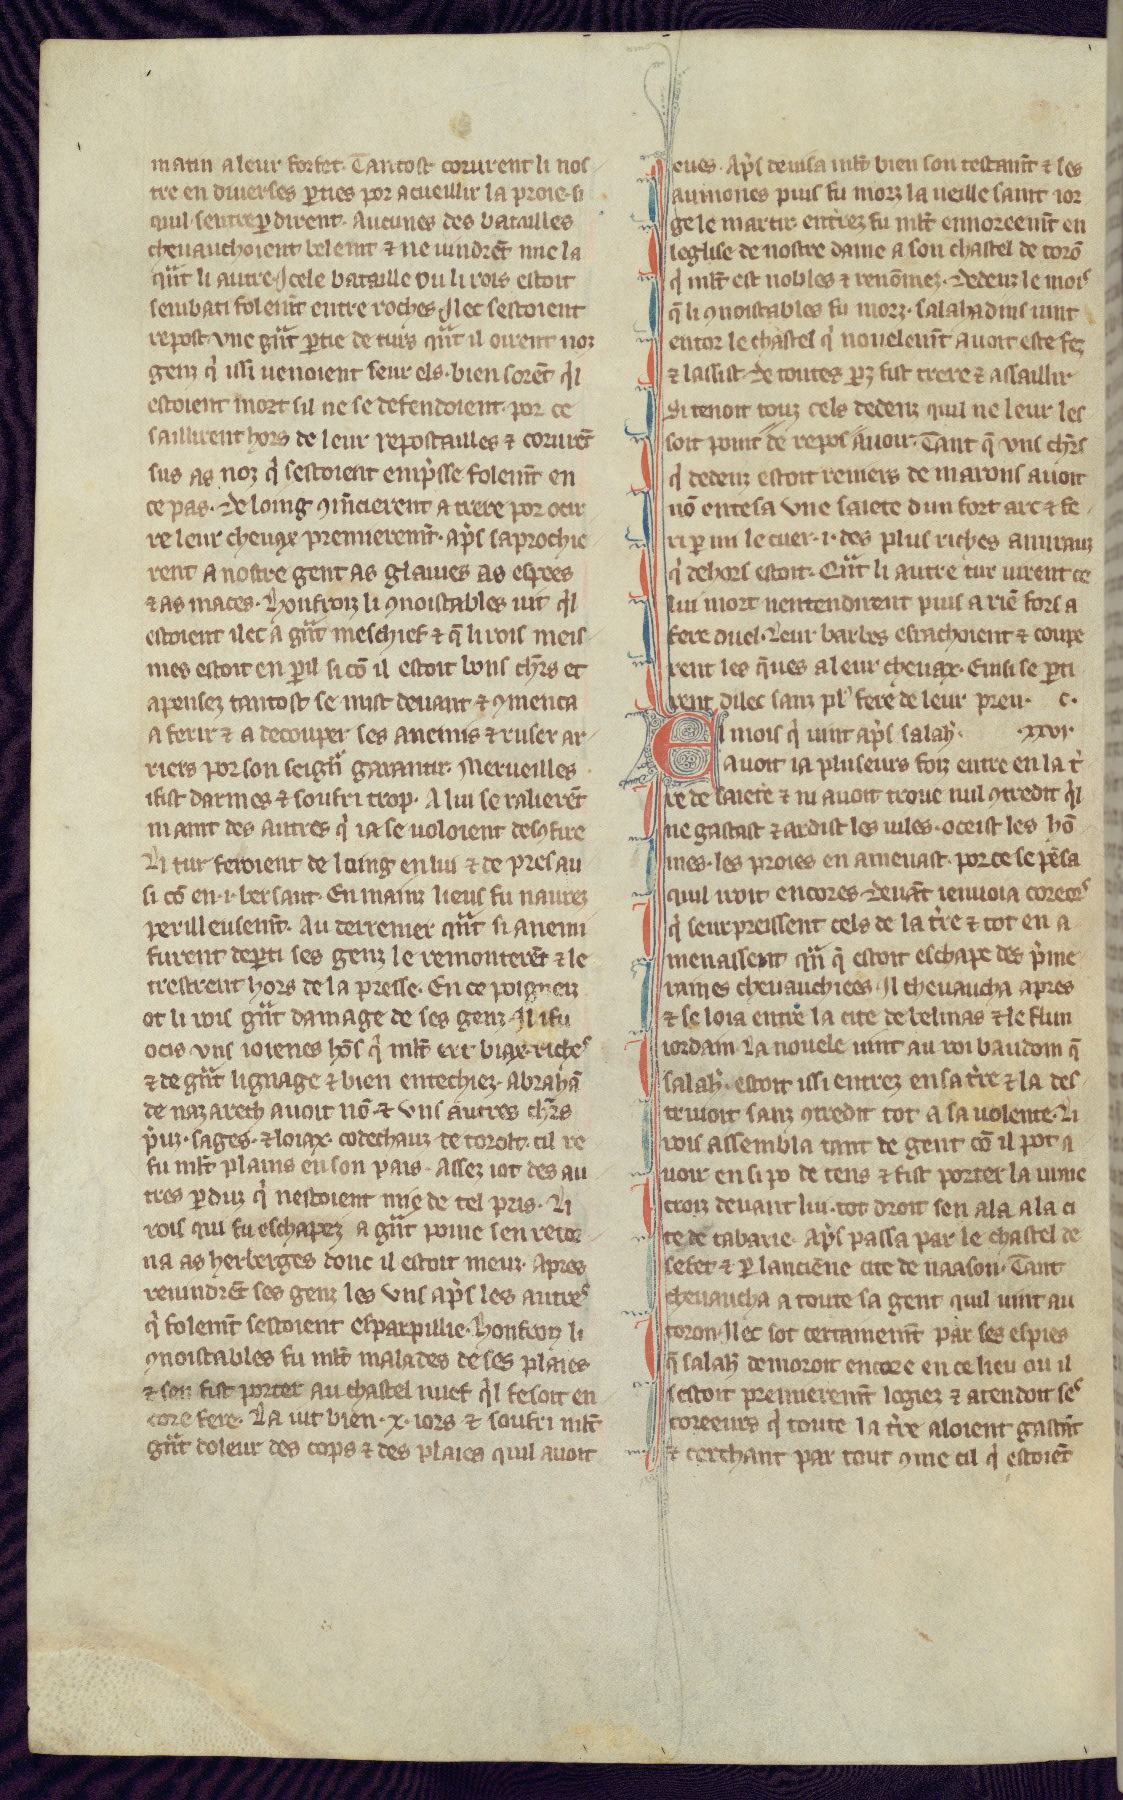 matin a leur forfet. Tantost corurent li nos
tre en diuerses ꝑties por acueullir la proie. si
quil sentreꝑdirent. Aucunes des batailles
cheuauchoient belemt ⁊ ne uindrēt mie la
q̄nt li autre. Icele bataille ou li rois estoit
sembati folemēt entre roches. Ilec sestoient
repost vne g̃nt ꝑtie de turs q̃nt il oirent noz
genz q̇ issi uenoient seur els. bien sorēt q̇l
estoient mort sil ne se defendoient. por ce
saillirent hors de leur repostailles ⁊ corurēt
sus as noz q̇ sestoient emp̃sse folemt̃ en
ce pas. De loing ꝯm̃cierent a trere por ocir
re leur cheuax premieremt̃. ap̃s saprochie
rent a nostre gent as glaiues as espees
⁊ as maces. Honfroiz li ꝯnoistables uit q̇l
estoient ilec a g̃nt meschief ⁊ q̄ li rois meis
mes estoit en ꝑil si cō il estoit bons ch̃rs et
apensez tantost se mist deuant ⁊ ꝯmenca
a ferir ⁊ a decouper ses anemis ⁊ ruser ar
riers por son seigñ garantir. Merueilles
i fist darmes ⁊ soufri trop. A lui se ralierēt
maint des autres q̇ ia se uoloient desꝯfire
Li tur feroient de loing en lui ⁊ de pres au
si cō en .i. bersaut. En mainz lieus fu naurez
perilleusemt̃. Au derrenier q̃nt si anemi
furent deꝑti ses genz le remonterēt ⁊ le
trestrent hors de la presse. En ce poigneiz
ot li rois g̃nt damage de ses genz. Il i fu
ocis vns ioienes hōs q̇ ml̃t ert biax. riches
⁊ de g̃nt lignage ⁊ bien entechiez. Abrahā
de nazareth auoit nō. ⁊ vns autres ch̃rs
p̃uz. sages. ⁊ loiax. codechauz de torolt. cil re
fu ml̃t plains en son pais. Assez iot des au
tres ꝑduz q̇ nestoient mie de tel pris. Li
rois qui fu eschapez a g̃nt poine sen retor
na as herberges donc il estoit meuz. Apres
reuindrēt ses genz les vns ap̃s les autres
q̇ folemt̃ sestoient esparpillie. Honfroiz li
ꝯnoistables fu ml̃t malades de ses plaies
⁊ sen fist porter au chastel nuef q̇l fesoit en
core fere. La iut bien .x. iors ⁊ soufri ml̃t
g̃nt doleur des cops ⁊ des plaies quil auoit
eues. Ap̃s deuisa ml̃t bien son testamt̃ ⁊ ses
aumones puis fu morz la ueille saint ior
ge le martir. enterrez fu ml̃t ennoreemt̃ en
leglise de nostre dame a son chastel de torō
q̇ ml̃t est nobles ⁊ renōmez. Dedenz le mois
q̄ li ꝯnoistables fu morz. salahadins uint
entor le chastel q̇ nouelemt̃ auoit este fez
⁊ lassist. de toutes ꝑz fist trere ⁊ assaillir
Si tenoit touz cels dedenz quil ne leur les
soit point de repos auoir. Tant q̄ vns ch̃rs
q̇ dedenz estoit reniers de marons auoit
nō entesa vne saiete dun fort arc ⁊ fe
ri ꝑ mi le cuer .i. des plus riches amiranz
q̇ dehors estoit. Q̃nt li autre tur uirent ce
lui mort nentendirent puis a riē fors a
fere duel. Leur barbes esrachoient ⁊ coupe
rent les q̄ues a leur cheuax. Einsi se ꝑti
rent dilec sanz pl᷒ fere de leur preu. c.
El mois q̇ uint ap̃s salah̃. .xxvi.
Auoit ia pluseurs foiz entre en la t̃
re de saiete ⁊ ni auoit troue nul ꝯtredit q̇l
ne gastast ⁊ ardist les uiles. oceist les hō
mes. les proies en amenast. por ce se pēsa
quil iroit encores. Deuāt i enuoia coreors
q̇ seurpreissent cels de la t̃re ⁊ tot en a
menassent q̃nq̄ estoit eschape des p̃me
raines cheuauchiees. Il cheuaucha apres
⁊ se loia entre la cite de belinas ⁊ le flun
iordain. La nouele uint au roi baudoin q̄
salah̃. estoit issi entrez en sa t̃re ⁊ la des
truioit sanz ꝯtredit tot a sa uolente. Li
rois assembla tant de gent cō il pot a
uoir en si po de tens ⁊ fist porter la uraie
croiz deuant lui. tot droit sen ala a la ci
te de tabarie. Ap̃s passa par le chastel de
sefet ⁊ ꝑ lanciēne cite de naason. Tant
cheuaucha a toute sa gent quil uint au
toron. Ilec sot certainemt̃ par ses espies
q̄ salah̃ demoroit encore en ce lieu ou il
sestoit premieremt̃ logiez ⁊ atendoit ses
coreeurs q̇ toute la t̃re aloient gastāt
⁊ cerchant par tout ꝯme cil q̇ estoiēt